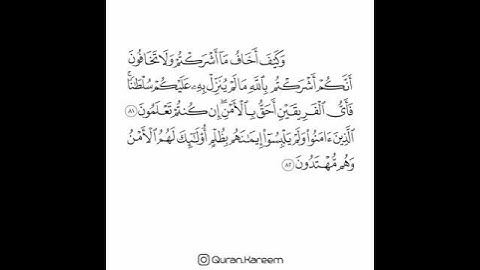 وَكَيْفَ أَخَافُ مَآ أَشْرَكْتُمْ وَلَا تَخَافُونَ
أَنَّكُمْ أَشْرَكْتُم بِٱللَّهِ مَا لَمْ يُنَزِّلْ بِهِۦ عَلَيْكُمْ سُلْطَٰنًا ۚ
فَأَىُّ ٱلْفَرِيقَيْنِ أَحَقُّ بِٱلْأَمْنِ ۖ إِن كُنتُمْ تَعْلَمُونَ ٨١
ٱلَّذِينَ ءَامَنُوا۟ وَلَمْ يَلْبِسُوٓا۟ إِيمَٰنَهُم بِظُلْمٍ أُو۟لَٰٓئِكَ لَهُمُ ٱلْأَمْنُ
وَهُم مُّهْتَدُونَ ٨٢
Quran.Kareem